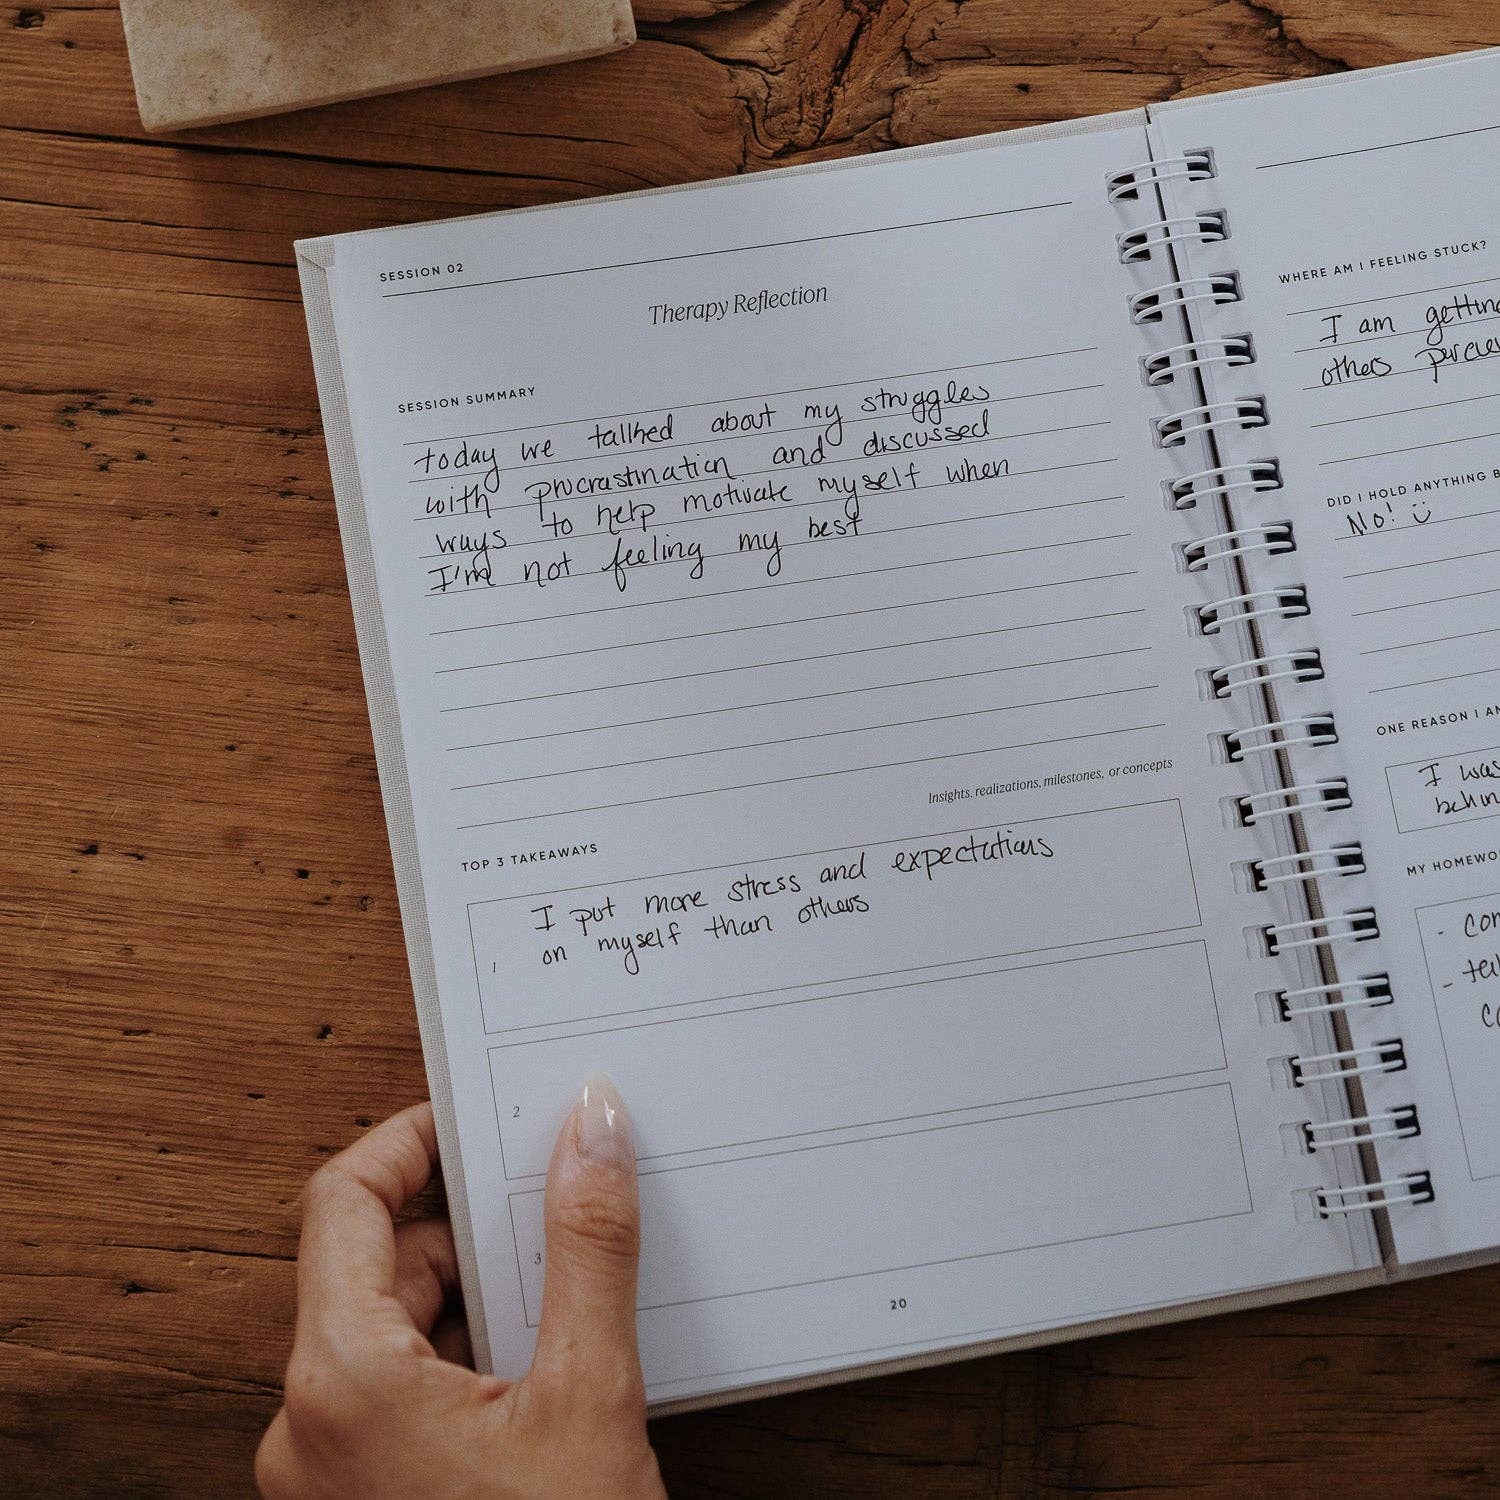 SESSION 02
Therapy Reflection
SESSION SUMMARY
today we talked about my struggles
with procrastination and discussed
ways to help motivate myself when
I'm not feeling my best
Insights, realizations, milestones, or concepts
TOP 3 TAKEAWAYS
1
I put more stress and expectations
on myself than others
2
3
20
WHERE AM I FEELING STUCK?
I am getting
others
DID I HOLD ANYTHING
No! ☺
ONE REASON I
I was
MY
-
-